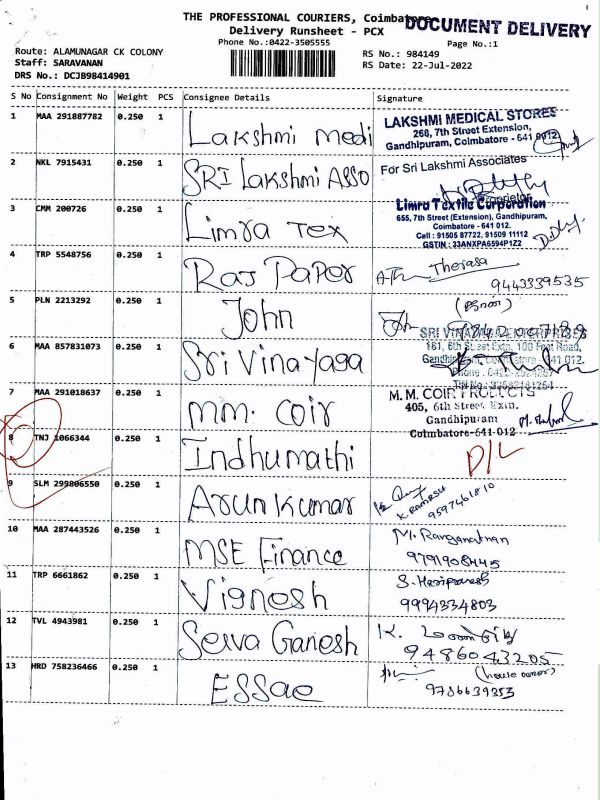 THE PROFESSIONAL COURIERS, Coimbatore
DOCUMENT DELIVERY
Delivery Runsheet - PCX
Phone No.:0422-3505555
Page No.:1
Route: ALAMUNAGAR CK COLONY
RS No.: 984149
Staff: SARAVANAN
RS Date: 22-Jul-2022
DRS No.: DCJB98414901
S No Consignment No Weight PCS Consignee Details Signature
1 MAA 291887782 0.250 1 Lakshmi Medi
LAKSHMI MEDICAL STORES
268, 7th Street Extension,
Gandhipuram, Coimbatore - 641 012.
2 NKL 7915431 0.250 1 SRI Lakshmi Asso
For Sri Lakshmi Associates
Proprietor
3 CMM 200726 0.250 1 Limra Tex
Limra Textile Corporation
655, 7th Street (Extension), Gandhipuram,
Coimbatore - 641 012.
Cell : 91505 87722, 91509 11112
GSTIN : 33ANXPA6594P1Z2
4 TRP 5548756 0.250 1 Raj Paper
Therasa
9443339535
5 PLN 2213292 0.250 1 John
6 MAA 857831073 0.250 1 Sri Vinayaga
SRI VINAYAGA ENTERPRISES
161, 6th Street Extn. 100 Feet Road,
Gandhipuram, Coimbatore - 641 012.
7 MAA 291018637 0.250 1 MM. Coir
M. M. COIR PRODUCTS
405, 6th Street Extn.
Gandhipuram
Coimbatore-641-012
8 TNJ 1066344 0.250 1 Indhumathi
D/L
9 SLM 299806550 0.250 1 Arun Kumar
K RAMESH
10 MAA 287443526 0.250 1 MSE Finance
M. Ranganathan
9791908445
11 TRP 6661862 0.250 1 Vignesh
9994334803
12 TVL 4943981 0.250 1 Selva Ganesh
9486043205
13 HRD 758236466 0.250 1 ESSae
(house owner)
9786639353